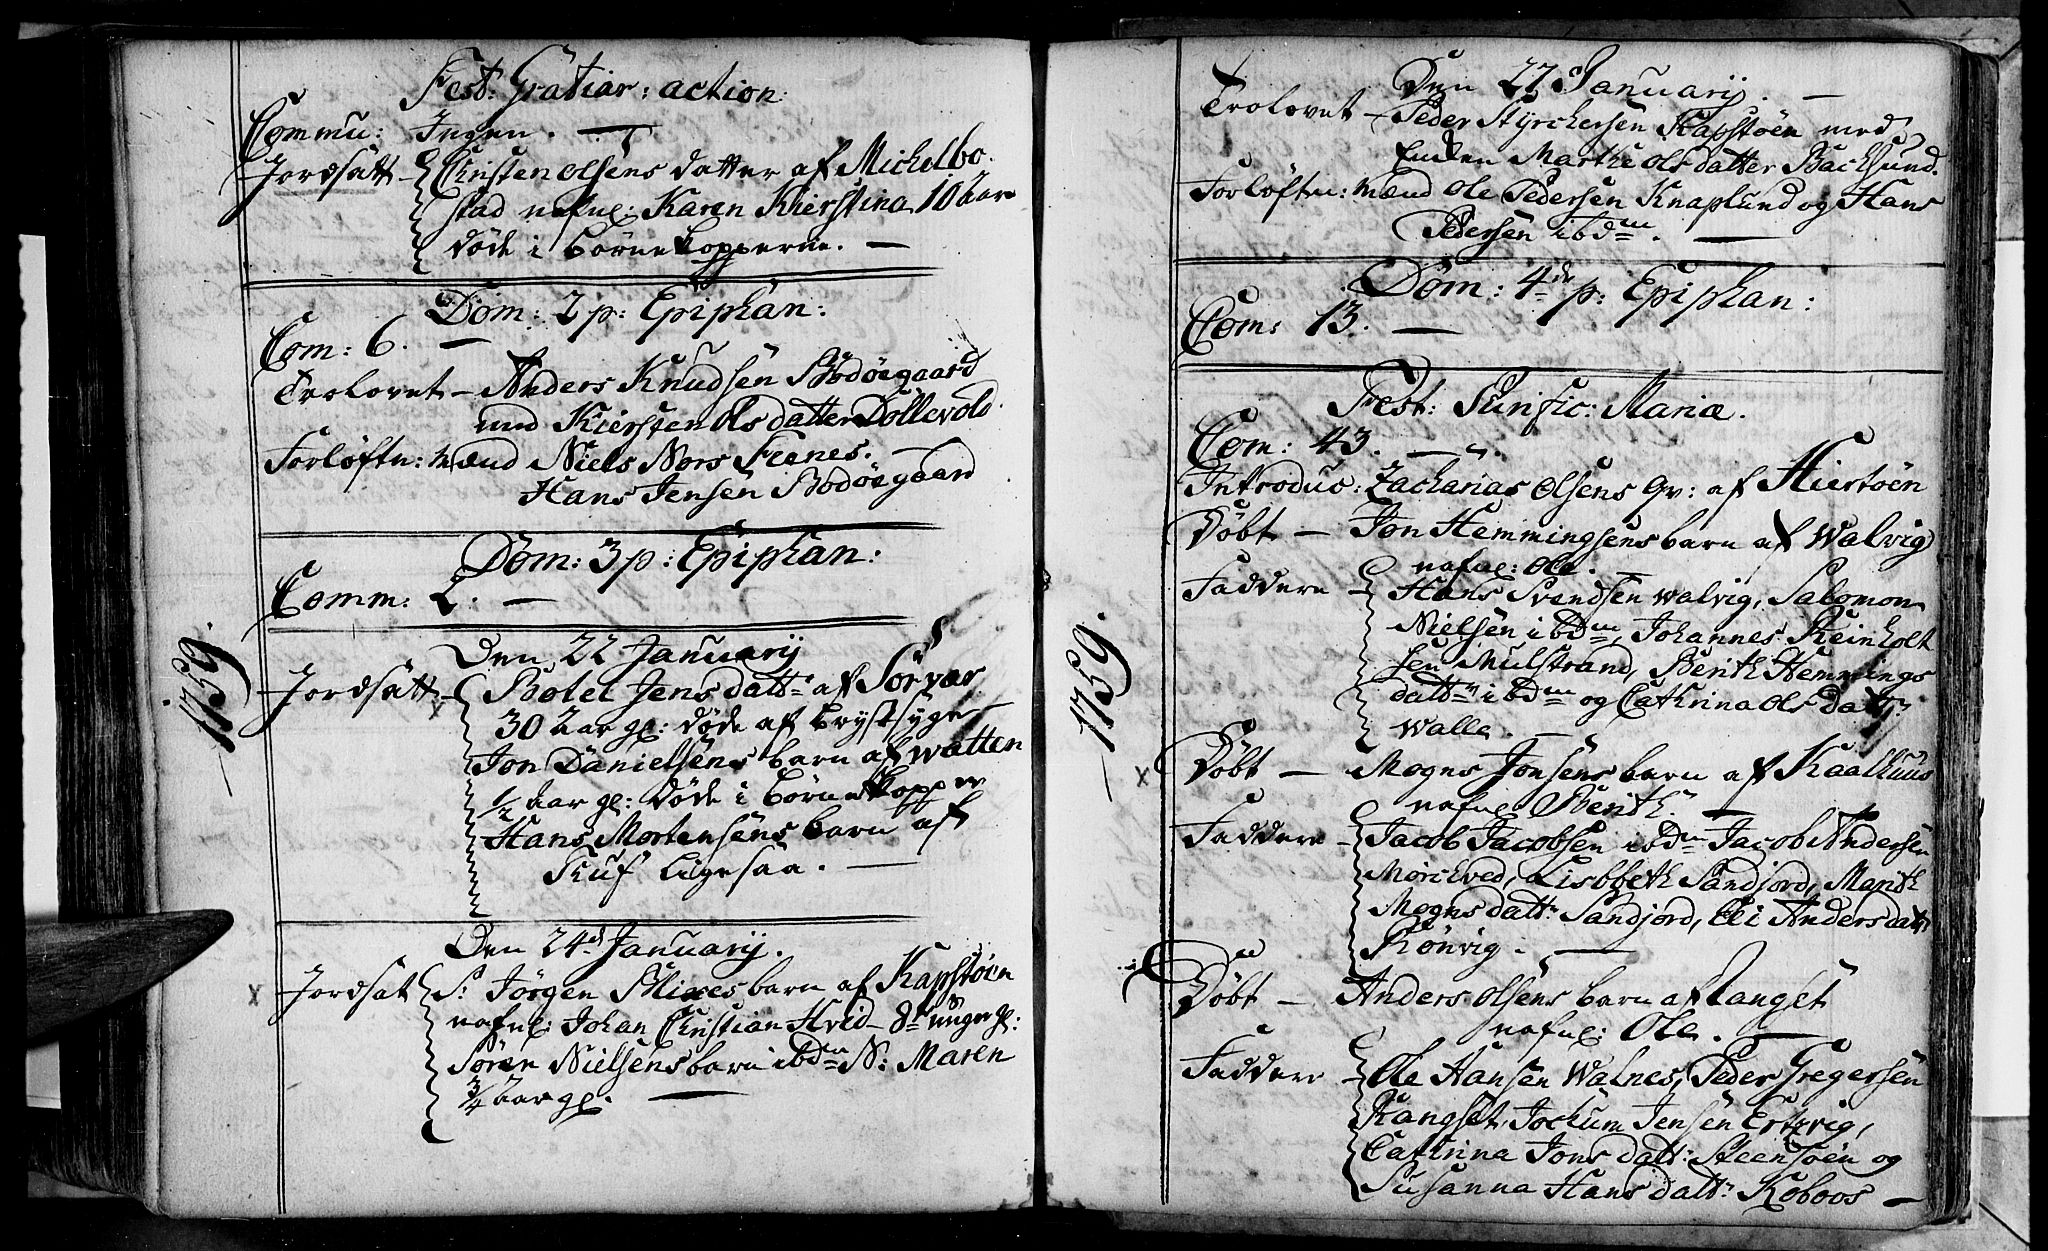 Fest: Gratiar: action:
Commu: Ingen.
Jordsatt - Christen Olsens datter af Michelbo-
stad nafnl: Karen Kierstina 10 Aar
døde i Børnekopperne.
Dom: 2 p: Epiphan:
Com: 6.
Trolovet - Anders Knudsen Bodøegaard
med Kiersten Olsdatter Dollevold.
Forløftn: mænd Niels Nors Fienes.
Hans Jensen Bodøegaard
Dom: 3 p: Epiphan:
Comm: 2.
1759.
Den 22 Januarij
Jordsatt - Bolet Jensdattr af Sørvær
30 Aar gl: døde af Brystsyge
Jon Danielsens barn af Watten
1/2 Aar gl: døde i Børnekopper
Hans Mortensens barn af
ligesaa.
Den 24d Januarij.
Jordsat Sr Jørgen Blixes barn af Kapstøen
nafnl: Johan Christian Hvid - 8 uuger gl:
Søren Nielsens barn ibdm N: Maren
3/4 Aar gl.
Den 27 Januarij.
Trolovet - Peder Styrchersen Kapstøen med
Enken Marthe Olsdatter Bachsund.
Forløftn: mænd Ole Pedersen Knaplund og Hans
Pedersen ibdm.
Dom: 4de p: Epiphan:
Com: 13.
Fest: Purific: Mariæ.
Com: 43.
Introduc: Zacharias Olsens Qv: af Hiertøen
Døbt - Jon Hemmingsens barn af Walvig
nafnl: Ole.
Faddere - Hans Svendsen Walvig, Salomon
Nielsen ibdm, Johannes Reinholt
sen Mulstrand, Berith Hemmings
dattr ibdm og Cathrina Olsdattr
Walle.
1759.
Døbt - Mogns Jonsens barn af Kaalhuus
nafnl Berith
Faddere - Jacob Jacobsen ibdm Jacob Andersen
Mørchved, Lisbbeth Sandjord, Marith
Mognsdattr Sandjord, Eli Andersdattr
Rønvig.
Døbt - Anders Olsens barn af Ranget
nafnl: Ole.
Faddere - Ole Hansen Walnes, Peder Gregersen
Rangset, Jochum Jensen Ertzvig,
Catrina Jonsdatt: Steensøen og
Susanna Hansdattr Koboos